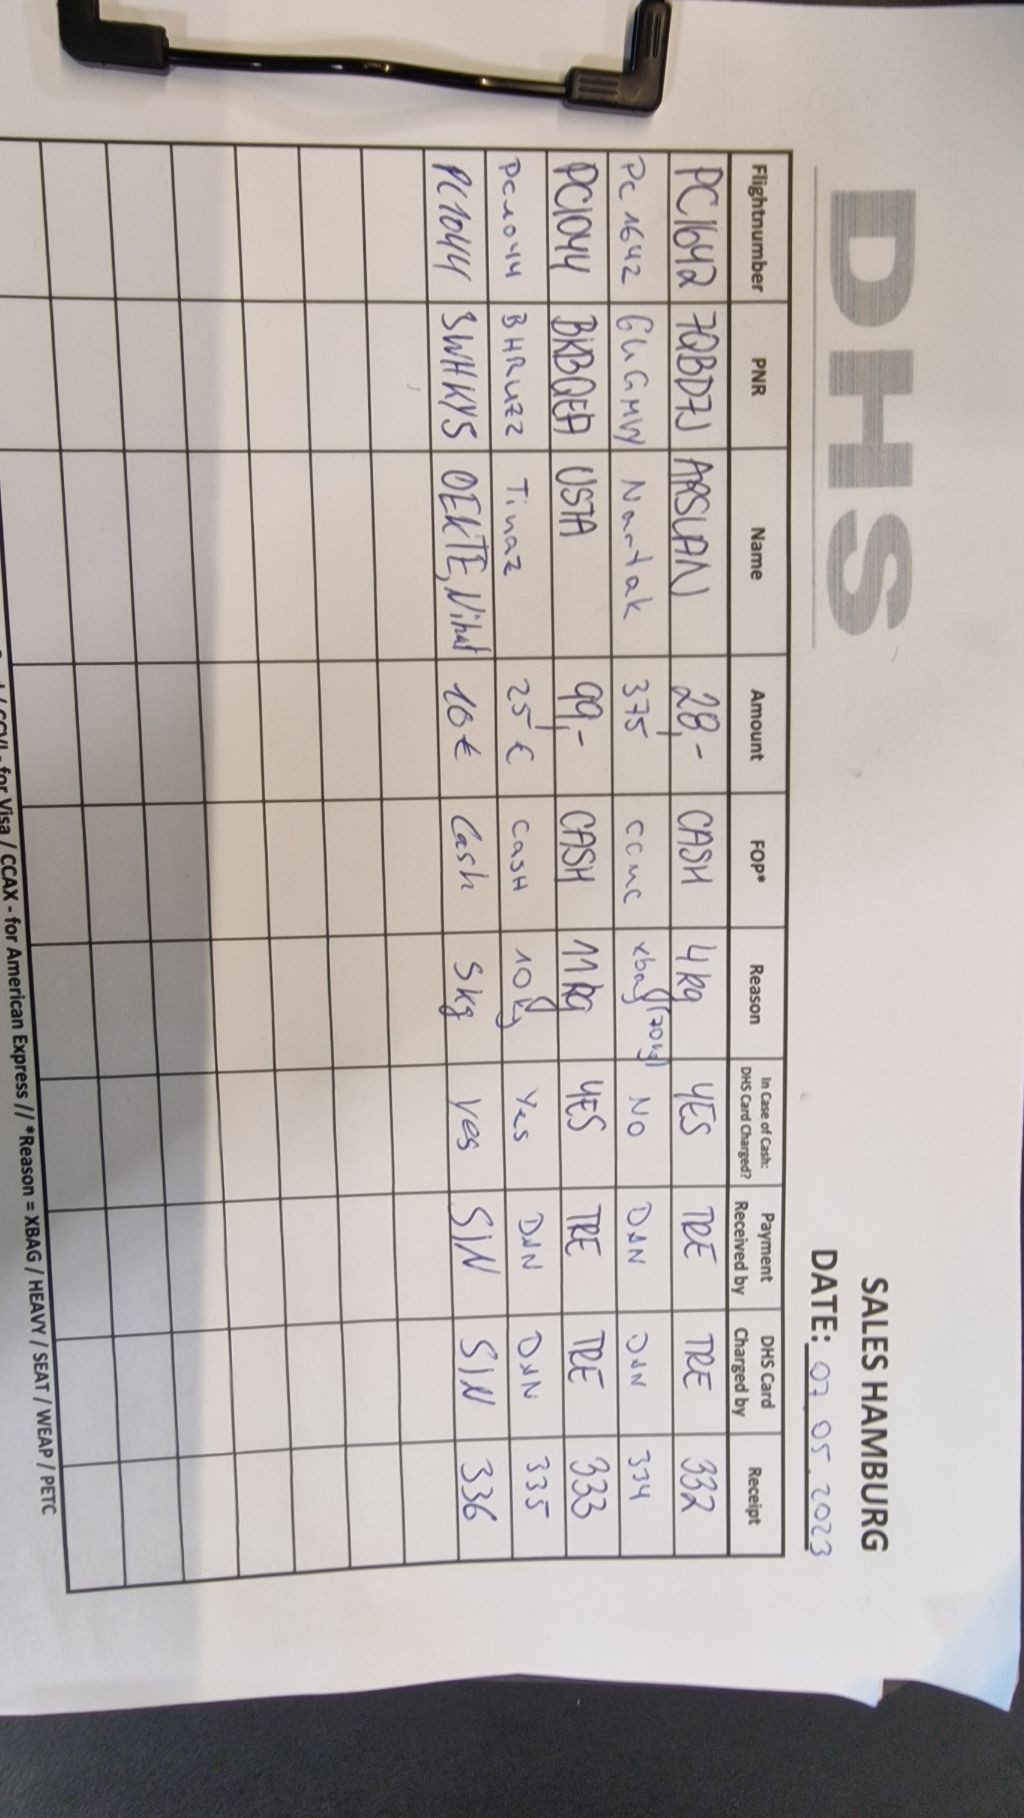 DHS
SALES HAMBURG
DATE: 07.05.2023
Flightnumber PNR Name Amount FOP* Reason In Case of Cash: DHS Card Charged? Payment Received by DHS Card Charged by Receipt
PC1642 7QBD7J ARSLAN 28,- CASH 4kg YES TRE TRE 332
PC1642 Nartak 375 ccmc xbag (20kg) NO 334
PC1044 BKBQEA USTA 99,- CASH 11kg YES TRE TRE 333
PC1044 BHRUZZ Tinaz 25€ CASH 10kg Yes 335
PC1044 3WHKYS OEKTE, Nihat 10€ Cash 5kg yes SIN SIN 336
for Visa / CCAX - for American Express // *Reason = XBAG / HEAVY / SEAT / WEAP / PETC